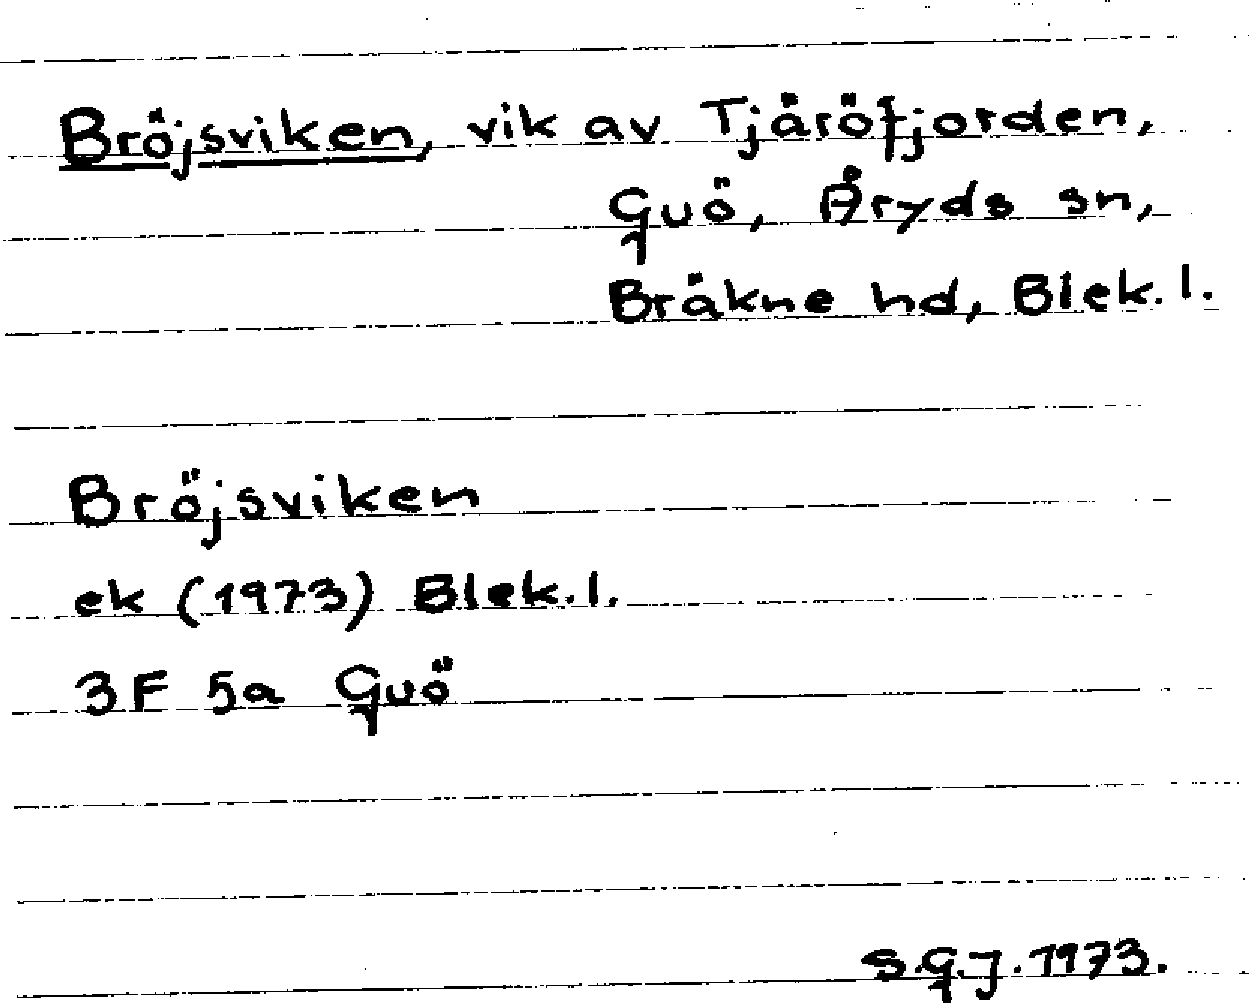 Bröjsviken, vik av Tjäröfjorden,
Guö, Åryds sn,
Bräkne hd, Blek. l.
Bröjsviken
ek (1973) Blek. l.
3F 5a Guö
S.G.J. 1973.